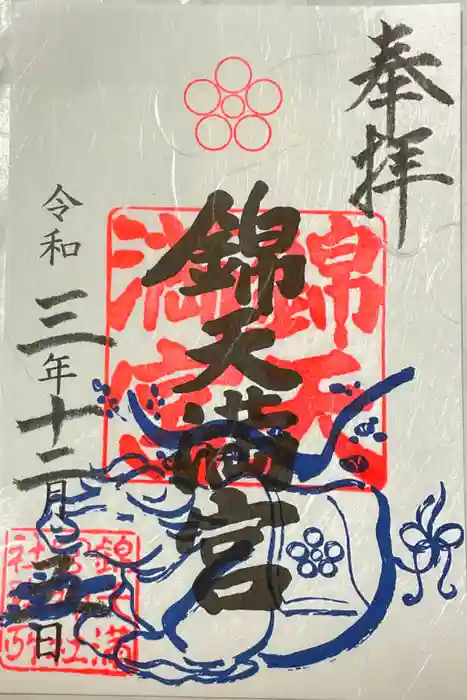 奉拝
錦天満宮
錦天満宮
令和三年十二月
日